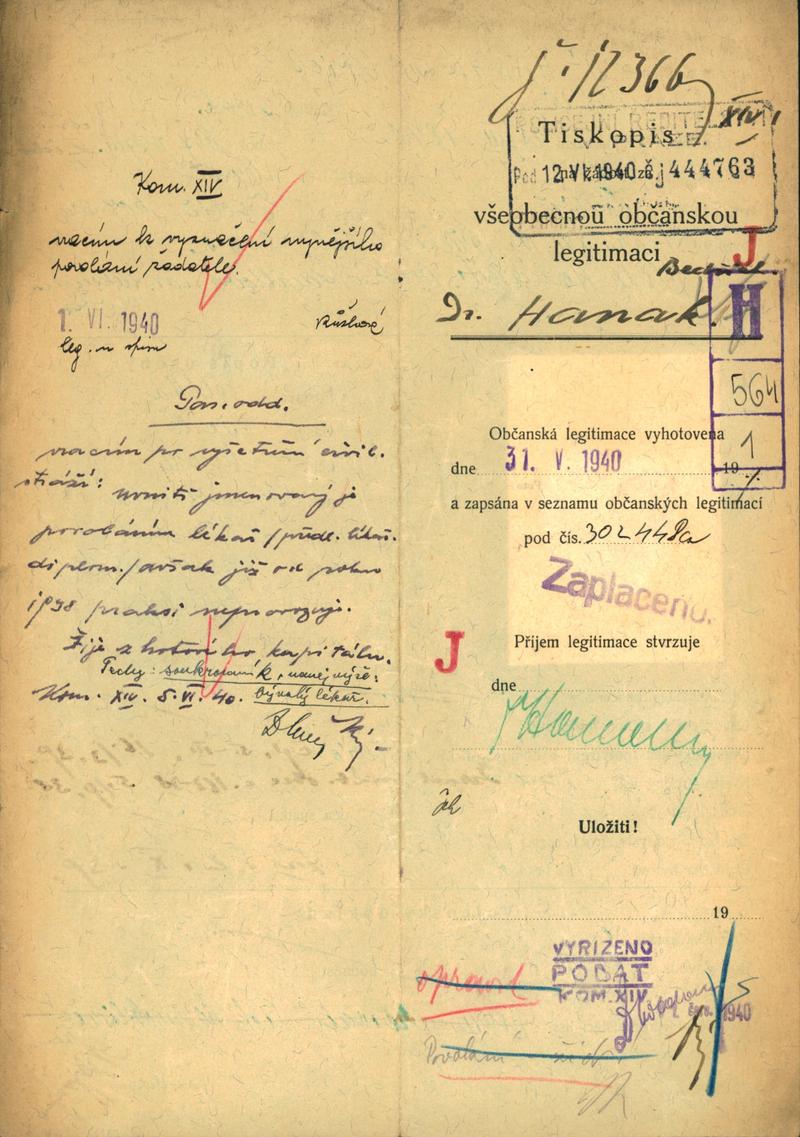 Kom. XIV
vracím k vyznačení nynějšího
povolání žadatele.
1. VI. 1940
leg. u spisu
Pas. odd.
vracím po vyšetření civil.
stráží: uvnitř jmenovaný je
povoláním lékař /předl. lékař.
diplom./ avšak již od roku
1938 praksi neprovozuje.
Žije z hotového kapitálu.
Tedy: soukromník, nanejvýše:
Kom. XIV. 5. VI. 40. bývalý lékař.
j. č. 12366
XIV
Tiskopis
12. VI. 1940 čj 444763
na žádost za
všeobecnou občanskou
legitimaci
J
Dr. Hanak
H
564
1
Občanská legitimace vyhotovena
dne 31. V. 1940 19
a zapsána v seznamu občanských legitimací
pod čís. 302448Pa
Zaplaceno.
J
Příjem legitimace stvrzuje
dne
Uložiti!
19
VYŘIZENO
PODAT
KOM. XIV
opravit
1940
Povolání